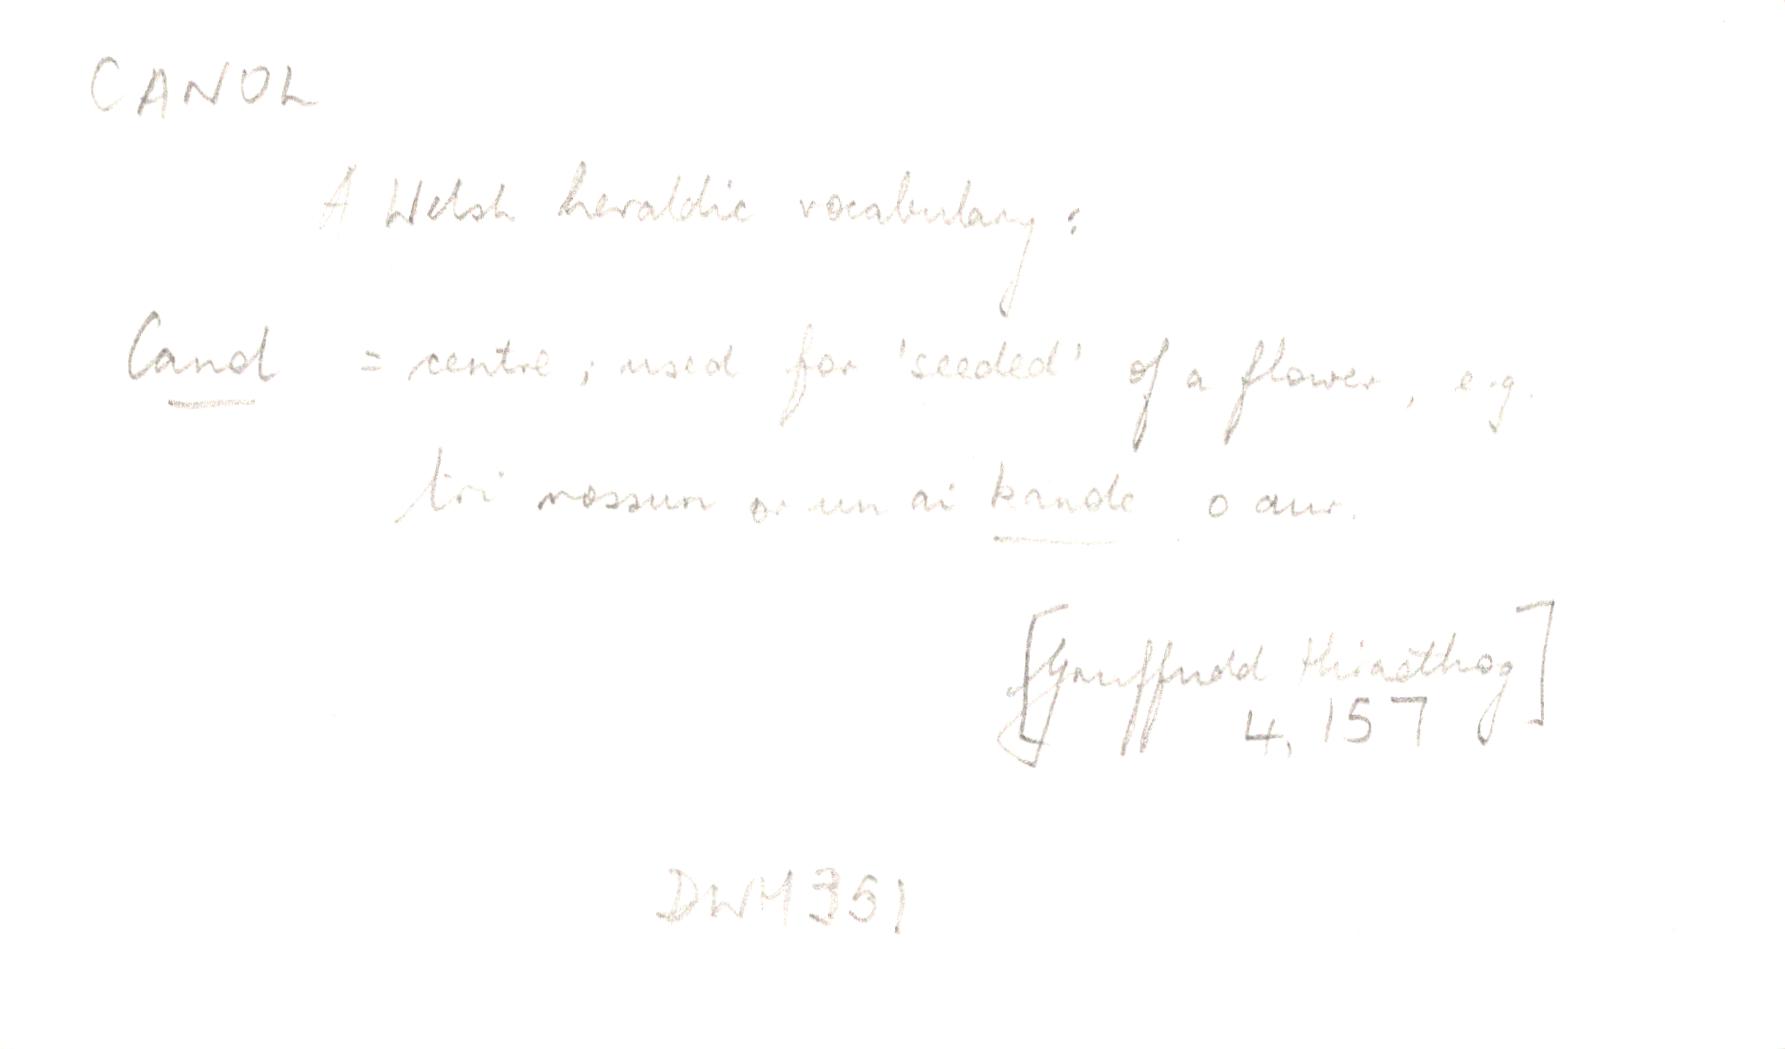 CANOL
A Welsh heraldic vocabulary:
Canol = centre; used for 'seeded' of a flower, e.g.
tri rossun or un ai kanole o aur.
[Gruffudd Hiraethog]
4, 157
DWH 351